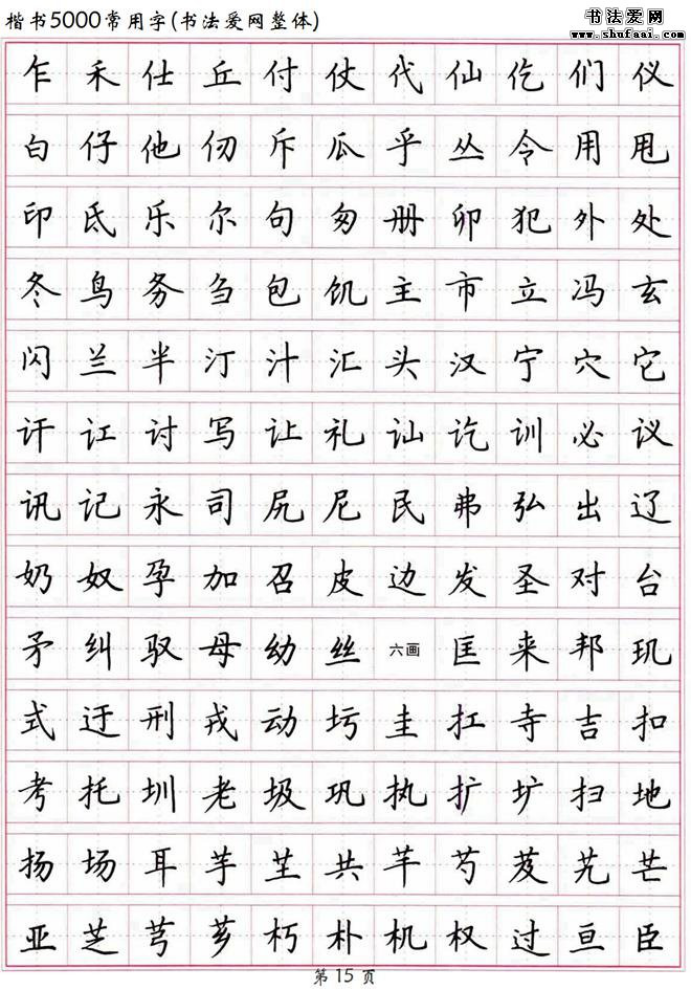 楷书5000常用字(书法爱网整体)
书法爱网
www.shufaai.com
乍 禾 仕 丘 付 仗 代 仙 仡 们 仪
白 仔 他 仞 斥 瓜 乎 丛 令 用 甩
印 氐 乐 尔 句 匆 册 卯 犯 外 处
冬 鸟 务 刍 包 饥 主 市 立 冯 玄
闪 兰 半 汀 汁 汇 头 汉 宁 穴 它
讦 讧 讨 写 让 礼 讪 讫 训 必 议
讯 记 永 司 尻 尼 民 弗 弘 出 辽
奶 奴 孕 加 召 皮 边 发 圣 对 台
矛 纠 驭 母 幼 丝 六画 匡 来 邦 玑
式 迂 刑 戎 动 圬 圭 扛 寺 吉 扣
考 托 圳 老 圾 巩 执 扩 圹 扫 地
扬 场 耳 芋 芏 共 芊 芍 芨 艽 芒
亚 芝 芎 芗 朽 朴 机 权 过 亘 臣
第 15 页